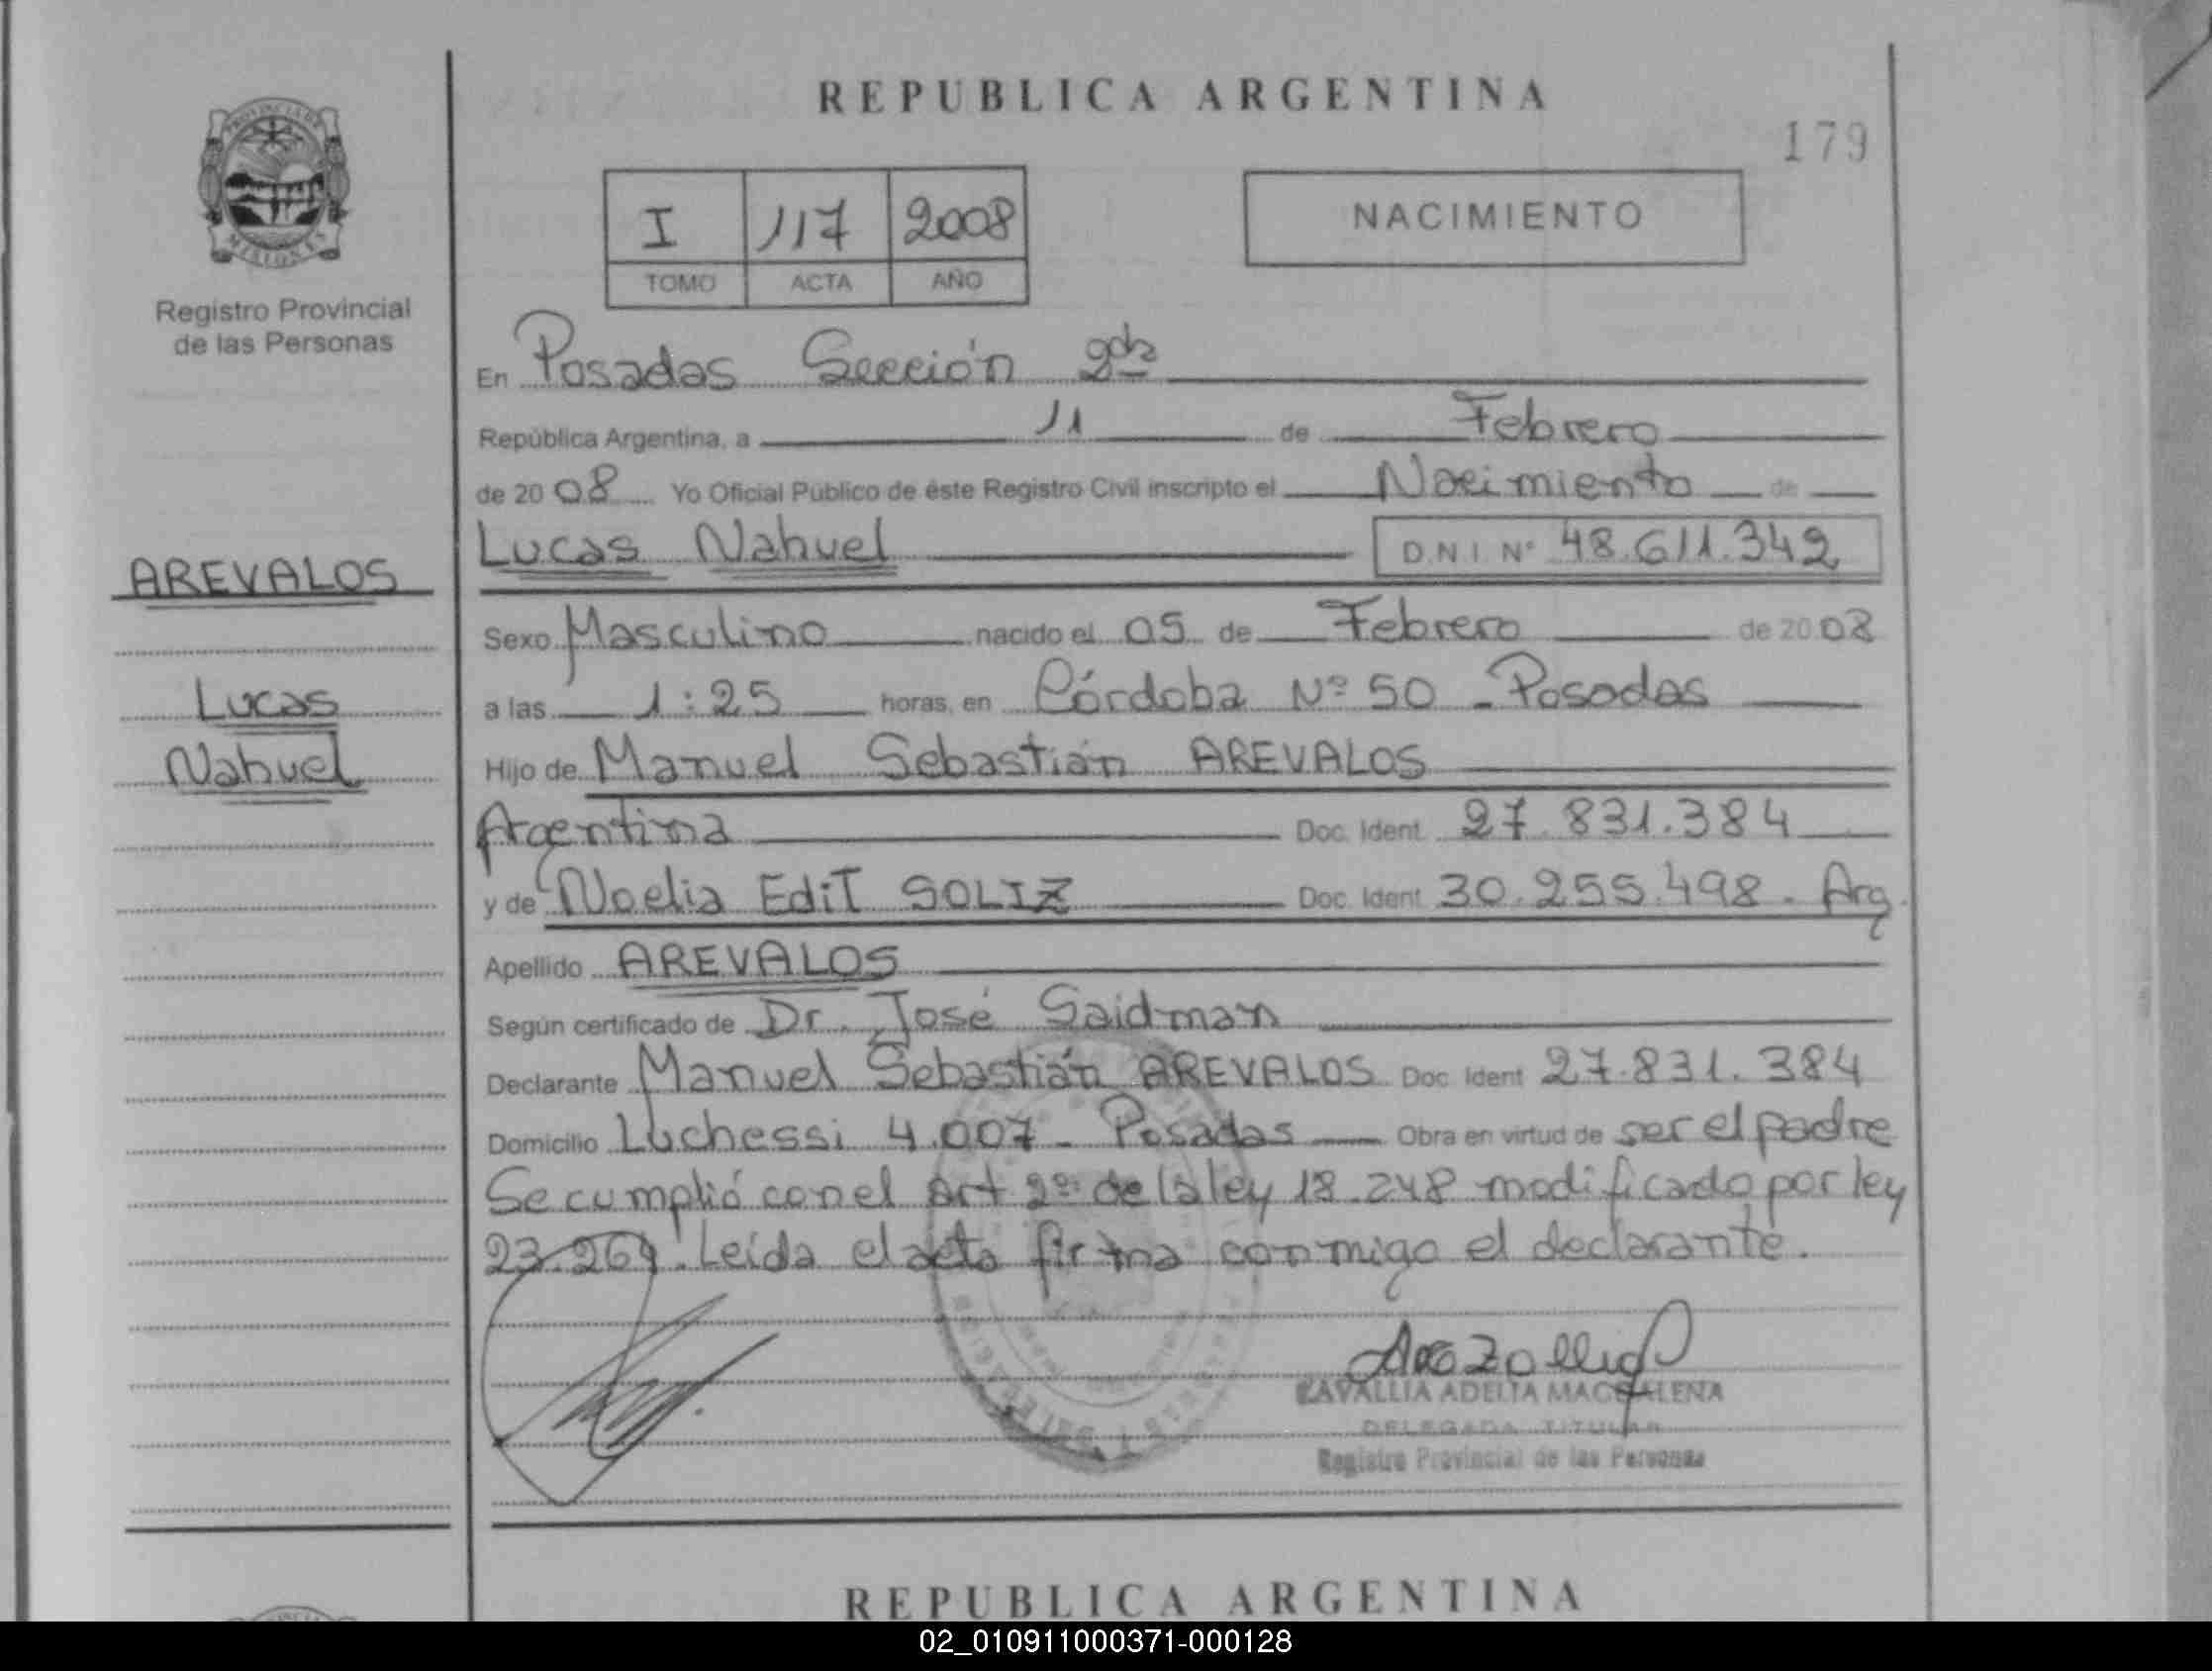 REPUBLICA ARGENTINA
179
I 117 2008
TOMO ACTA AÑO
NACIMIENTO
PROVINCIA DE
MISIONES
Registro Provincial
de las Personas
AREVALOS
Lucas
Nahuel
En Posadas Sección 2da
República Argentina, a 11 de Febrero
de 2008 Yo Oficial Público de éste Registro Civil inscripto el Nacimiento de
Lucas Nahuel D.N.I. Nº 48.611.342
Sexo Masculino nacido el 05 de Febrero de 2008
a las 1:25 horas, en Córdoba Nº 50 - Posadas
Hijo de Manuel Sebastián AREVALOS
Argentina Doc. Ident. 27.831.384
y de Noelia Edit SOLIZ Doc. Ident. 30.255.498. Arg.
Apellido AREVALOS
Según certificado de Dr. José Saidman
Declarante Manuel Sebastián AREVALOS Doc. Ident 27.831.384
Domicilio Luchessi 4.007 - Posadas Obra en virtud de ser el padre
Se cumplió con el Art 2º de la ley 18.248 modificado por ley
23.264. Leída el acta firma conmigo el declarante.
LAVALLIA ADELIA MAGDALENA
DELEGADA TITULAR
Registro Provincial de las Personas
REPUBLICA ARGENTINA
02_010911000371-000128